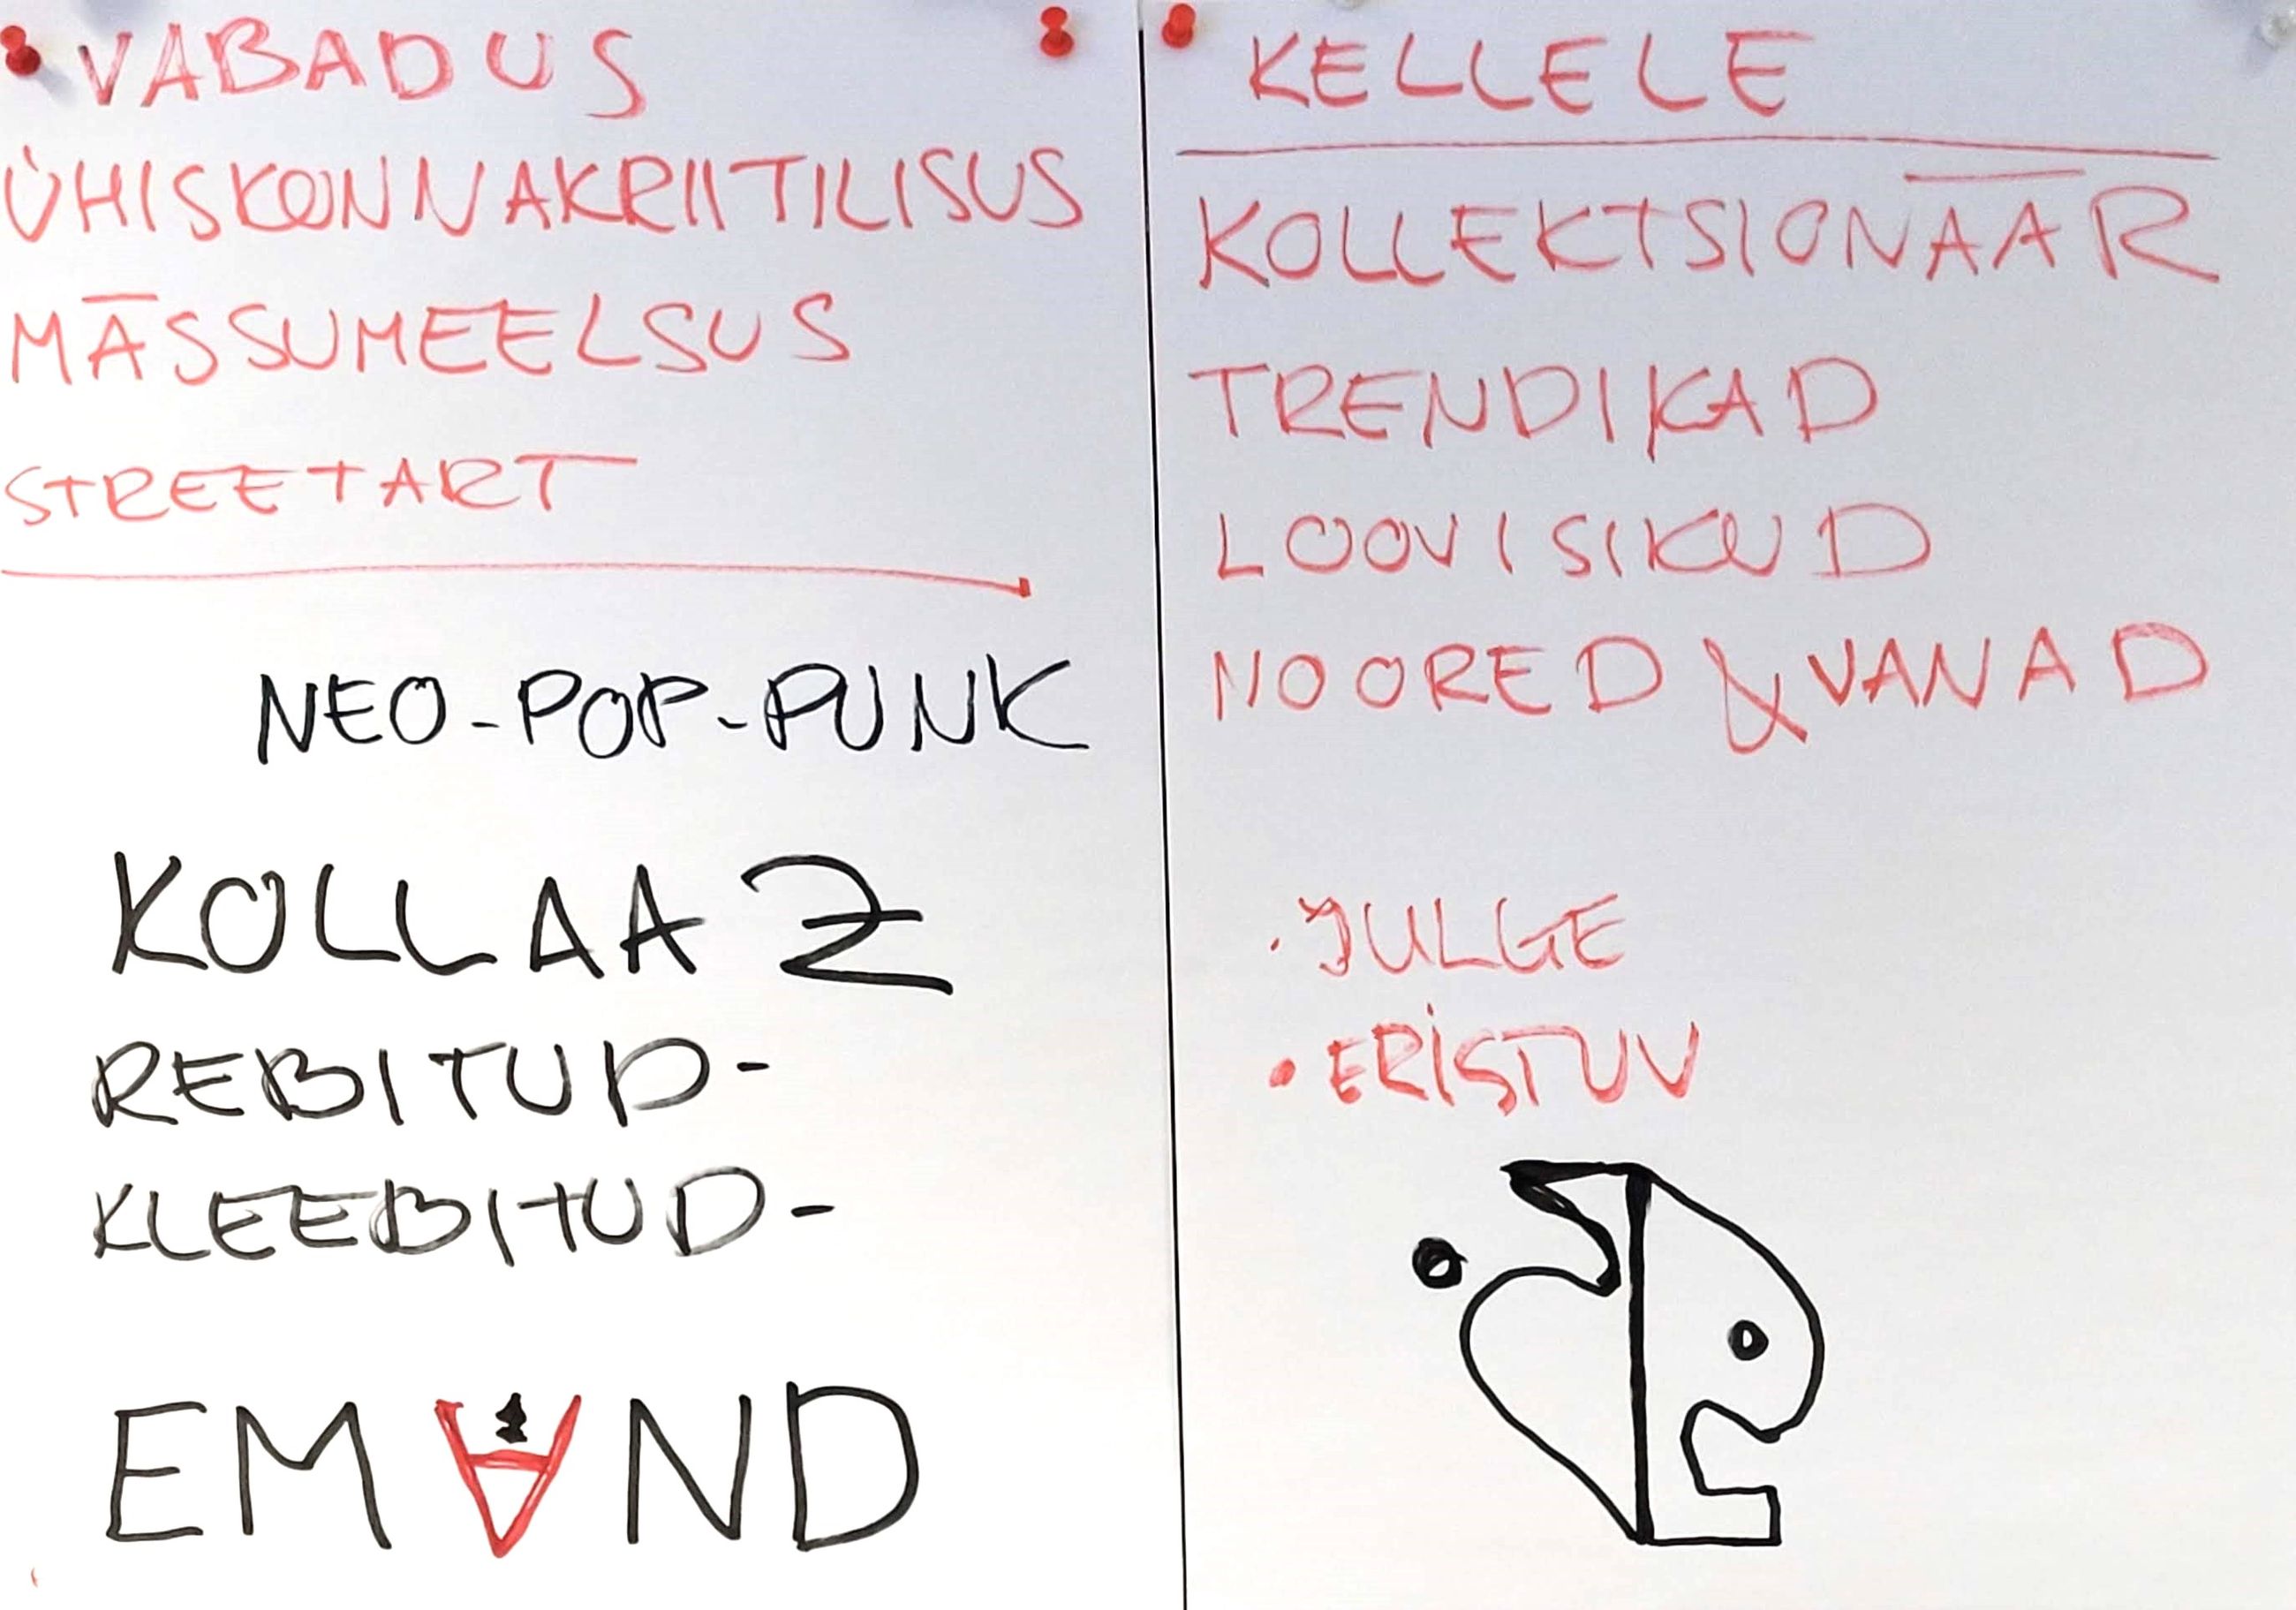 VABADUS
ÜHISKONNAKRIITILISUS
MÄSSUMEELSUS
STREETART
NEO-POP-PUNK
KOLLAAŽ
REBITUD-
KLEEBITUD-
EMAND
KELLELE
KOLLEKTSIONÄÄR
TRENDIKAD
LOOVISIKUD
NOORED & VANAD
• JULGE
• ERISTUV